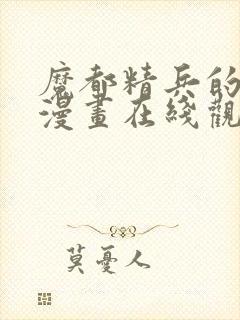 魔都精兵的
漫畫在綫觀
莫憂人